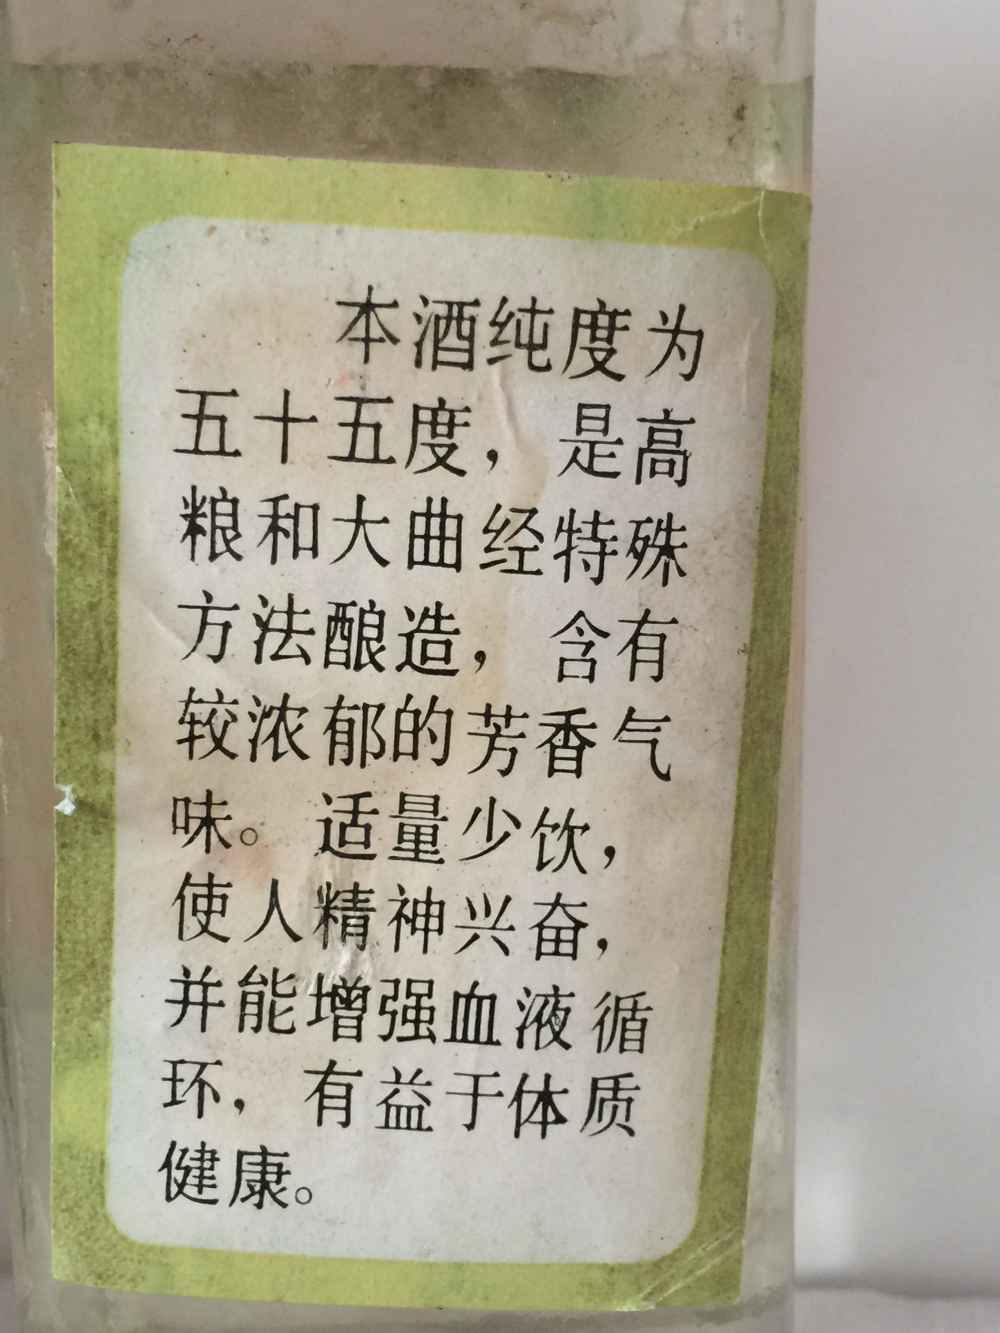 本酒纯度为
五十五度，是高
粮和大曲经特殊
方法酿造，含有
较浓郁的芳香气
味。适量少饮，
使人精神兴奋，
并能增强血液循
环，有益于体质
健康。